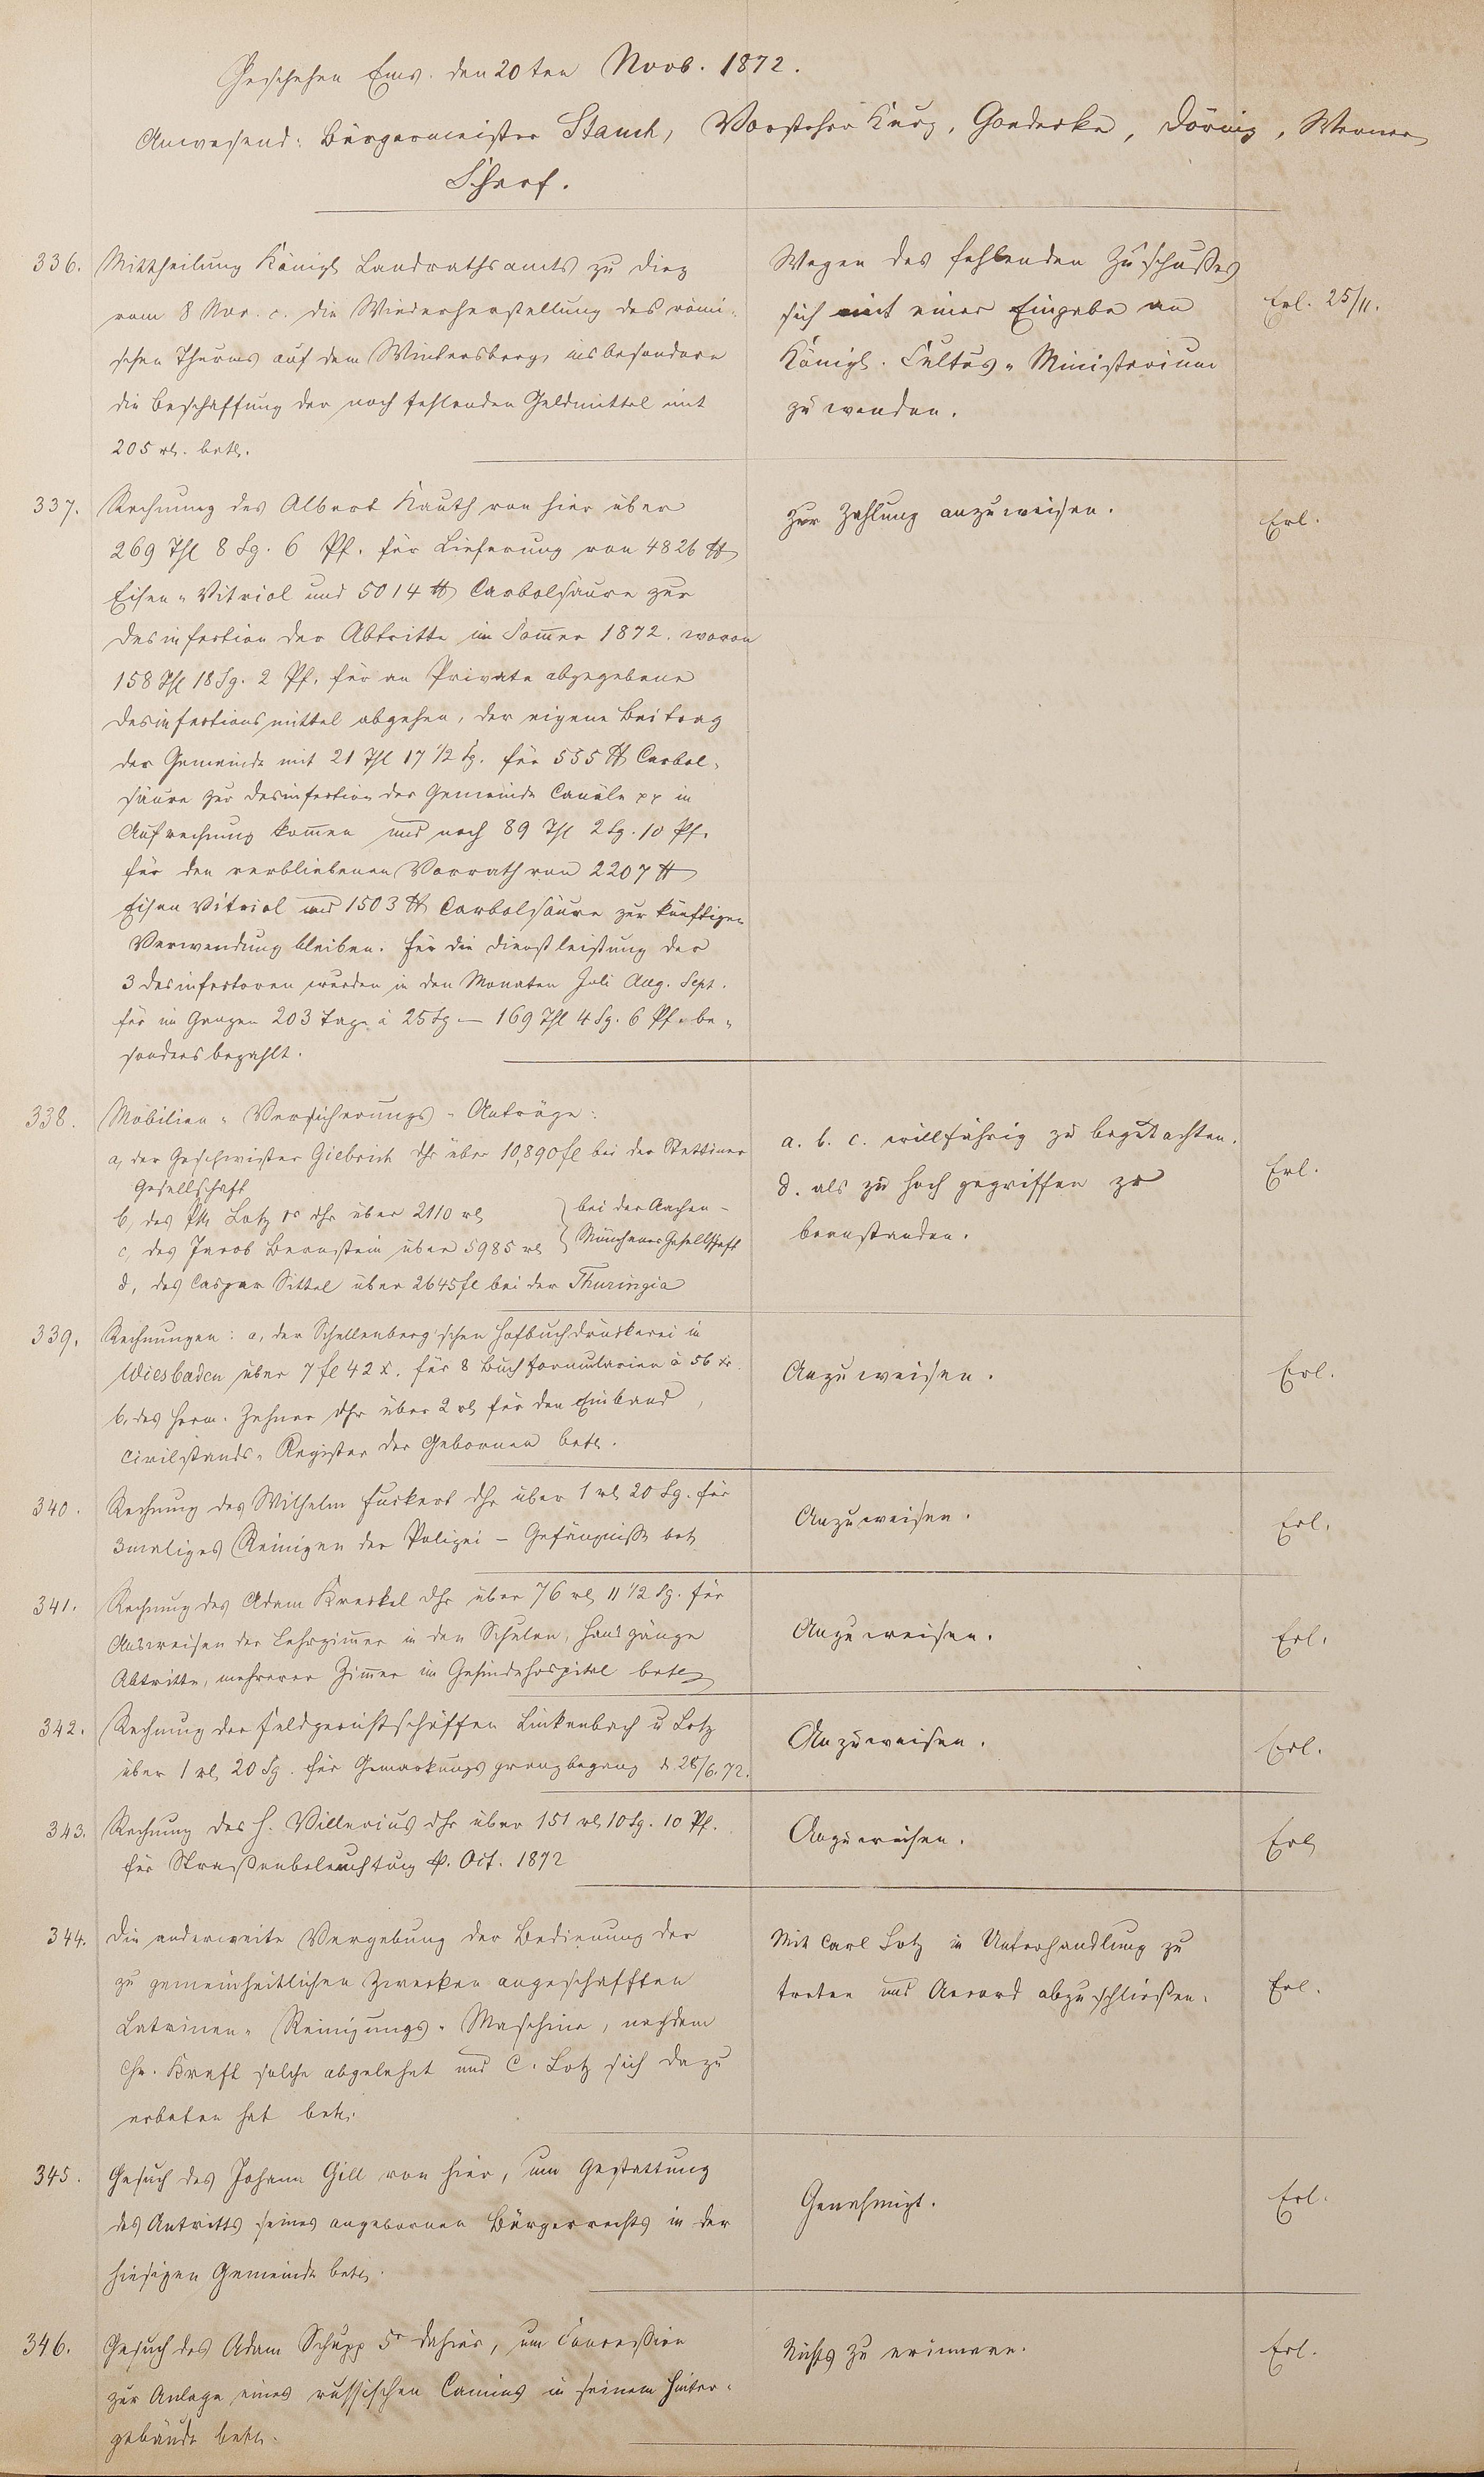 Geschehen Ems. den 20ten Novb. 1872.
Anwesend: Bürgermeister Stauch, Vorsteher Kurz, Goedecke, Döring, Werner
Scherf.
336. Mittheilung Königl Landrathsamts zu Diez
vom 8 Nov. c. die Wiederherstellung des römi-
schen Thurms auf dem Wintersberg, insbesondere
die Beschaffung der noch fehlenden Geldmittel mit
205 rl. betr.
Wegen des fehlenden Zuschußes
sich mit einer Eingabe an
Königl. Cultus-Ministerium
zu wenden.
Erl. 25/11.
337. Rechnung des Albert Kauth von hier über
269 Thl 8 Sg. 6 Pf. für Lieferung von 4826 ℔
Eisen-Vitriol und 5014 ℔ Carbolsäure zur
Desinfection der Abtritte im Som̅er 1872. wovon
158 Thl 18 Sg. 2 Pf. für an Private abgegebene
Desinfectionsmittel abgehen, der eigene Beitrag
der Gemeinde mit 21 Thl 17 1/2 Sg. für 555 ℔ Carbol-
säure zur Desinfection der Gemeinde Canäle pp in
Aufrechnung kom̅en und noch 89 Thl 2 Sg. 10 Pf.
für den verbliebenen Vorrath von 2207 ℔
Eisen Vitriol und 1503 ℔ Carbolsäure zur künftigen
Verwendung bleiben. Für die Dienstleistung der
3 Desinfectoren wurden in den Monaten Juli Aug. Sept.
für im Ganzen 203 Tage à 25 Sg — 169 Thl 4 Sg. 6 Pf. be-
sonders bezahlt.
Zur Zahlung anzuweisen.
Erl.
338. Mobilien-Versicherungs-Anträge:
a, der Geschwister Gielbrich dhr über 10,890 fl bei der Stettiner
Gesellschaft
b, des Lotz dhr über 2110 rl
c, des Jacob Bernstein über 5985 rl
bei der Aachen-
Münchner Gesellschaft
d, des Caspar Sittel über 2645 fl bei der Thuringia
a. b. c. willfährig zu begutachten.
d. als zu hoch gegriffen zu
beanstanden.
Erl.
339. Rechnungen: a, der Schellenberg'schen Hofbuchdruckerei in
Wiesbaden über 7 fl 42 x. für 8 Buch Formularien à 56 xr.
b, des Herm. Zehner dhr über 2 rl für den Einband,
Civilstands-Register der Gebornen betr.
Anzuweisen.
Erl.
340. Rechnung des Wilhelm Fuckert dhr über 1 rl 20 Sg. für
3maliges Reinigen der Polizei-Gefängniße betr
Anzuweisen.
Erl.
341. Rechnung des Adam Kreckel dhr über 76 rl 11 1/2 Sg. für
Ausweisen der Lehrzimmer in den Schulen, Hausgänge
Abtritte, mehrerer Zim̅er im Gesindehospital betr
Anzuweisen.
Erl.
342. Rechnung der Feldgerichtschöffen Linkenbach u Lotz
über 1 rl 20 Sg. für Gemarkungsgrenzbegang d 28/6.72.
Anzuweisen.
Erl.
343. Rechnung des H. Villerius dhr über 151 rl 10 Sg. 10 Pf.
für Straßenbeleuchtung p. Oct. 1872
Anzuweisen.
Erl
344. Die anderweite Vergebung der Bedienung der
zu gemeinheitlichen Zwecken angeschafften
Latrinen-Reinigungs-Maschine, nachdem
Chr. Kraft solche abgelehnt und C. Lotz sich dazu
erboten hat betr.
Mit Carl Lotz in Unterhandlung zu
treten und Accord abzuschließen.
Erl.
345. Gesuch des Johann Gill von hier, um Gestattung
des Antritts seines angebornen Bürgerrechts in der
hiesigen Gemeinde betr.
Genehmigt.
Erl.
346. Gesuch des Adam Schupp 5r dahier, um Conceßion
zur Anlage eines russischen Camins in seinem Hinter-
gebäude betr.
Nichts zu erinnern.
Erl.